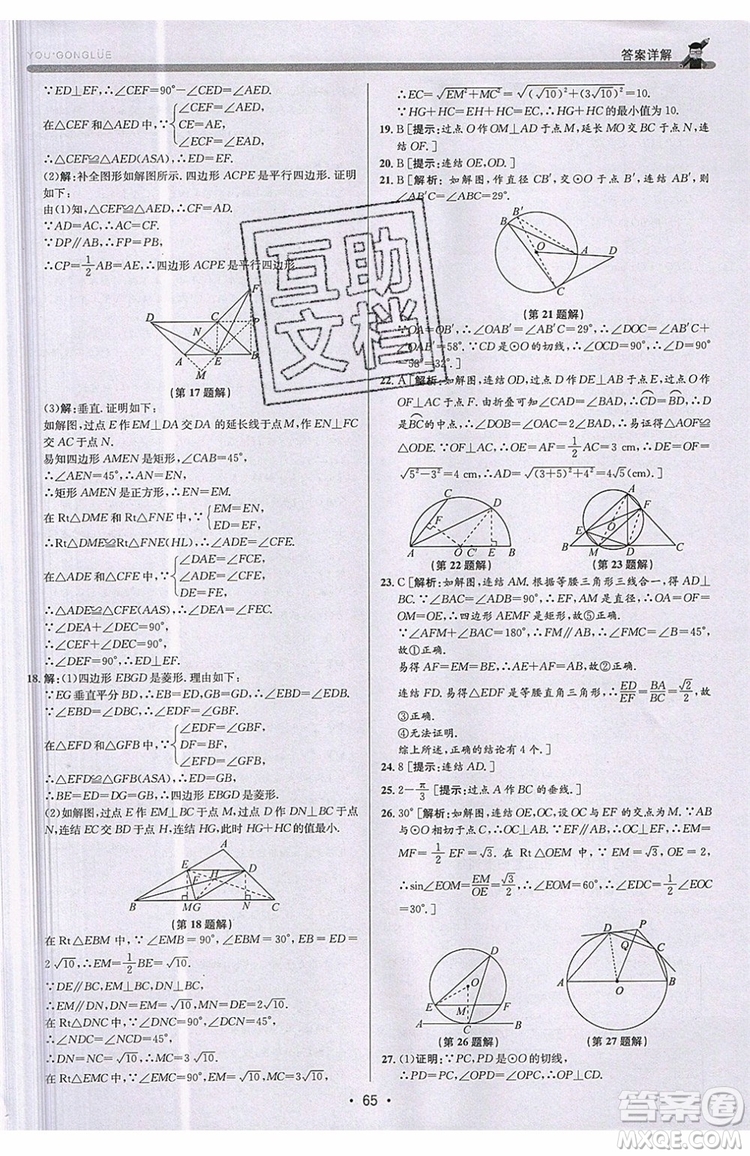 YOU·GONGLÜE
答案详解
∵ED⊥EF,∴∠CEF=90°-∠CED=∠AED.
在△CEF和△AED中,∵{∠CEF=∠AED, CE=AE, ∠ECF=∠EAD,
∴△CEF≌△AED(ASA),∴ED=EF.
(2)解:补全图形如解图所示.四边形ACPE是平行四边形.证明
如下:
由(1)知,△CEF≌△AED,∴CF=AD.
∵AD=AC,∴AC=CF.
∵DP∥AB,∴FP=PB.
∴CP=1/2AB=AE,∴四边形ACPE是平行四边形.
D C F P N A E B M
(第17题解)
(3)解:垂直.证明如下:
如解图,过点E作EM⊥DA交DA的延长线于点M,过点E作EN⊥FC
交AC于点N.
易知四边形AMEN是矩形,∠CAE=45°,
∴∠AEN=45°,∴AN=EN.
∴矩形AMEN是正方形,∴EM=EN.
在Rt△DME和Rt△FNE中,∵{EM=EN, ED=EF,
∴Rt△DME≌Rt△FNE(HL),∴∠ADE=∠CFE.
在△ADE和△CFE中,∵{∠DAE=∠FCE, ∠ADE=∠CFE, DE=FE,
∴△ADE≌△CFE(AAS),∴∠DEA=∠FEC.
∵∠DEA+∠DEC=90°,
∴∠CEF+∠DEC=90°.
∴∠DEF=90°,∴ED⊥EF.
18.解:(1)四边形EBGD是菱形.理由如下:
∵EG垂直平分BD,∴EB=ED,GB=GD,∴∠EBD=∠EDB.
∵∠EBD=∠DBC,∴∠EDF=∠GBF.
在△EFD和△GFB中,∵{∠EDF=∠GBF, ∠EFD=∠GFB, DF=BF,
∴△EFD≌△GFB(ASA),∴ED=BG.
∴BE=ED=DG=GB,∴四边形EBGD是菱形.
(2)如解图,过点E作EM⊥BC于点M,过点D作DN⊥BC于点
N,连结EC交BD于点H,连结HG,此时HG+HC的值最小.
A E D H F B M G N C
(第18题解)
在Rt△EBM中,∵∠EMB=90°,∠EBM=30°,EB=ED=
2√10,∴EM=1/2BE=√10.
∵DE∥BC,EM⊥BC,DN⊥BC,
∴EM∥DN,EM=DN=√10,MN=DE=2√10.
在Rt△DNC中,∵∠DNC=90°,∠DCN=45°,
∴∠NDC=∠NCD=45°,
∴DN=NC=√10,∴MC=3√10.
在Rt△EMC中,∵∠EMC=90°,EM=√10,MC=3√10,
∴EC=√(EM²+MC²)=√((√10)²+(3√10)²)=10.
∵HG+HC=EH+HC=EC,∴HG+HC的最小值为10.
19.B[提示:过点O作OM⊥AD于点M,延长MO交BC于点F,连
结OF.]
20.B[提示:连结OE,OD.]
21.B[解析:如解图,作直径CB′,交⊙O于点B′,连结AB′,则
∠AB′C=∠ABC=29°.
B B′ O A D C
(第21题解)
∵OA=OB′,∴∠OAB′=∠AB′C=29°,∴∠AOC=∠OAB′+
∠AB′O=58°.∵CD是⊙O的切线,∴∠OCD=90°,∴∠D=90°
-58°=32°.]
22.A[解析:如解图,连结OD,OC,作DE⊥AB于点E,OF⊥AC
于点F,根据折叠,∠CAD=∠BAD,∴CD=BD,∴点D是
BC的中点,∴∠DOB=∠OAC=2∠BAD.易证得△AOF≌
△ODE.∴OE=AF=1/2AC=3 cm.在Rt△DOE中,DE=
√(5²-3²)=4 cm,∴AD=√((3+5)²+4²)=4√5(cm).]
C D F A O C′ E B
(第22题解)
A F O E B M D C
(第23题解)
23.C[解析:如解图,连结AM.根据等腰三角形三线合一,得AD⊥
BC,∴AM是直径,∴∠AEM=∠AFM=90°.∵OA=OF=
OM=OE,∴四边形AEMF是矩形,故⑤正确.
∵∠AFM+∠BAC=180°,∴FM∥AB,故②正确.
①易得AF=EM=BE,故①正确.
易得△ABC、△EFD是等腰直角三角形,∴ED/EF=BA/BC=√2/2,故
③正确.
④无法证明.
综上所述,正确的共有4个.]
24.8[提示:连结ON.]
25.2-π/3[提示:过点A作BC的垂线.]
26.30°[解析:如解图,连结OE,OC,设OC与EF的交点为M.∵AB
与⊙O相切于点C,∴OC⊥AB.∵EF∥AB,∴OC⊥EF,∴EM=
MF=1/2EF=√3.在Rt△OEM中,∵EM=√3,OE=2,
∴sin∠EOM=EM/OE=√3/2,∴∠EOM=60°,∴∠D=1/2∠EOC
=30°.]
D O E M F A C B
(第26题解)
D P Q C A O B
(第27题解)
27.(1)证明:∵PC,PD是⊙O的切线,
∴PC=PD,∴∠PDC=∠PCD.
·65·
互助
文档
答案圈
MXQE.COM